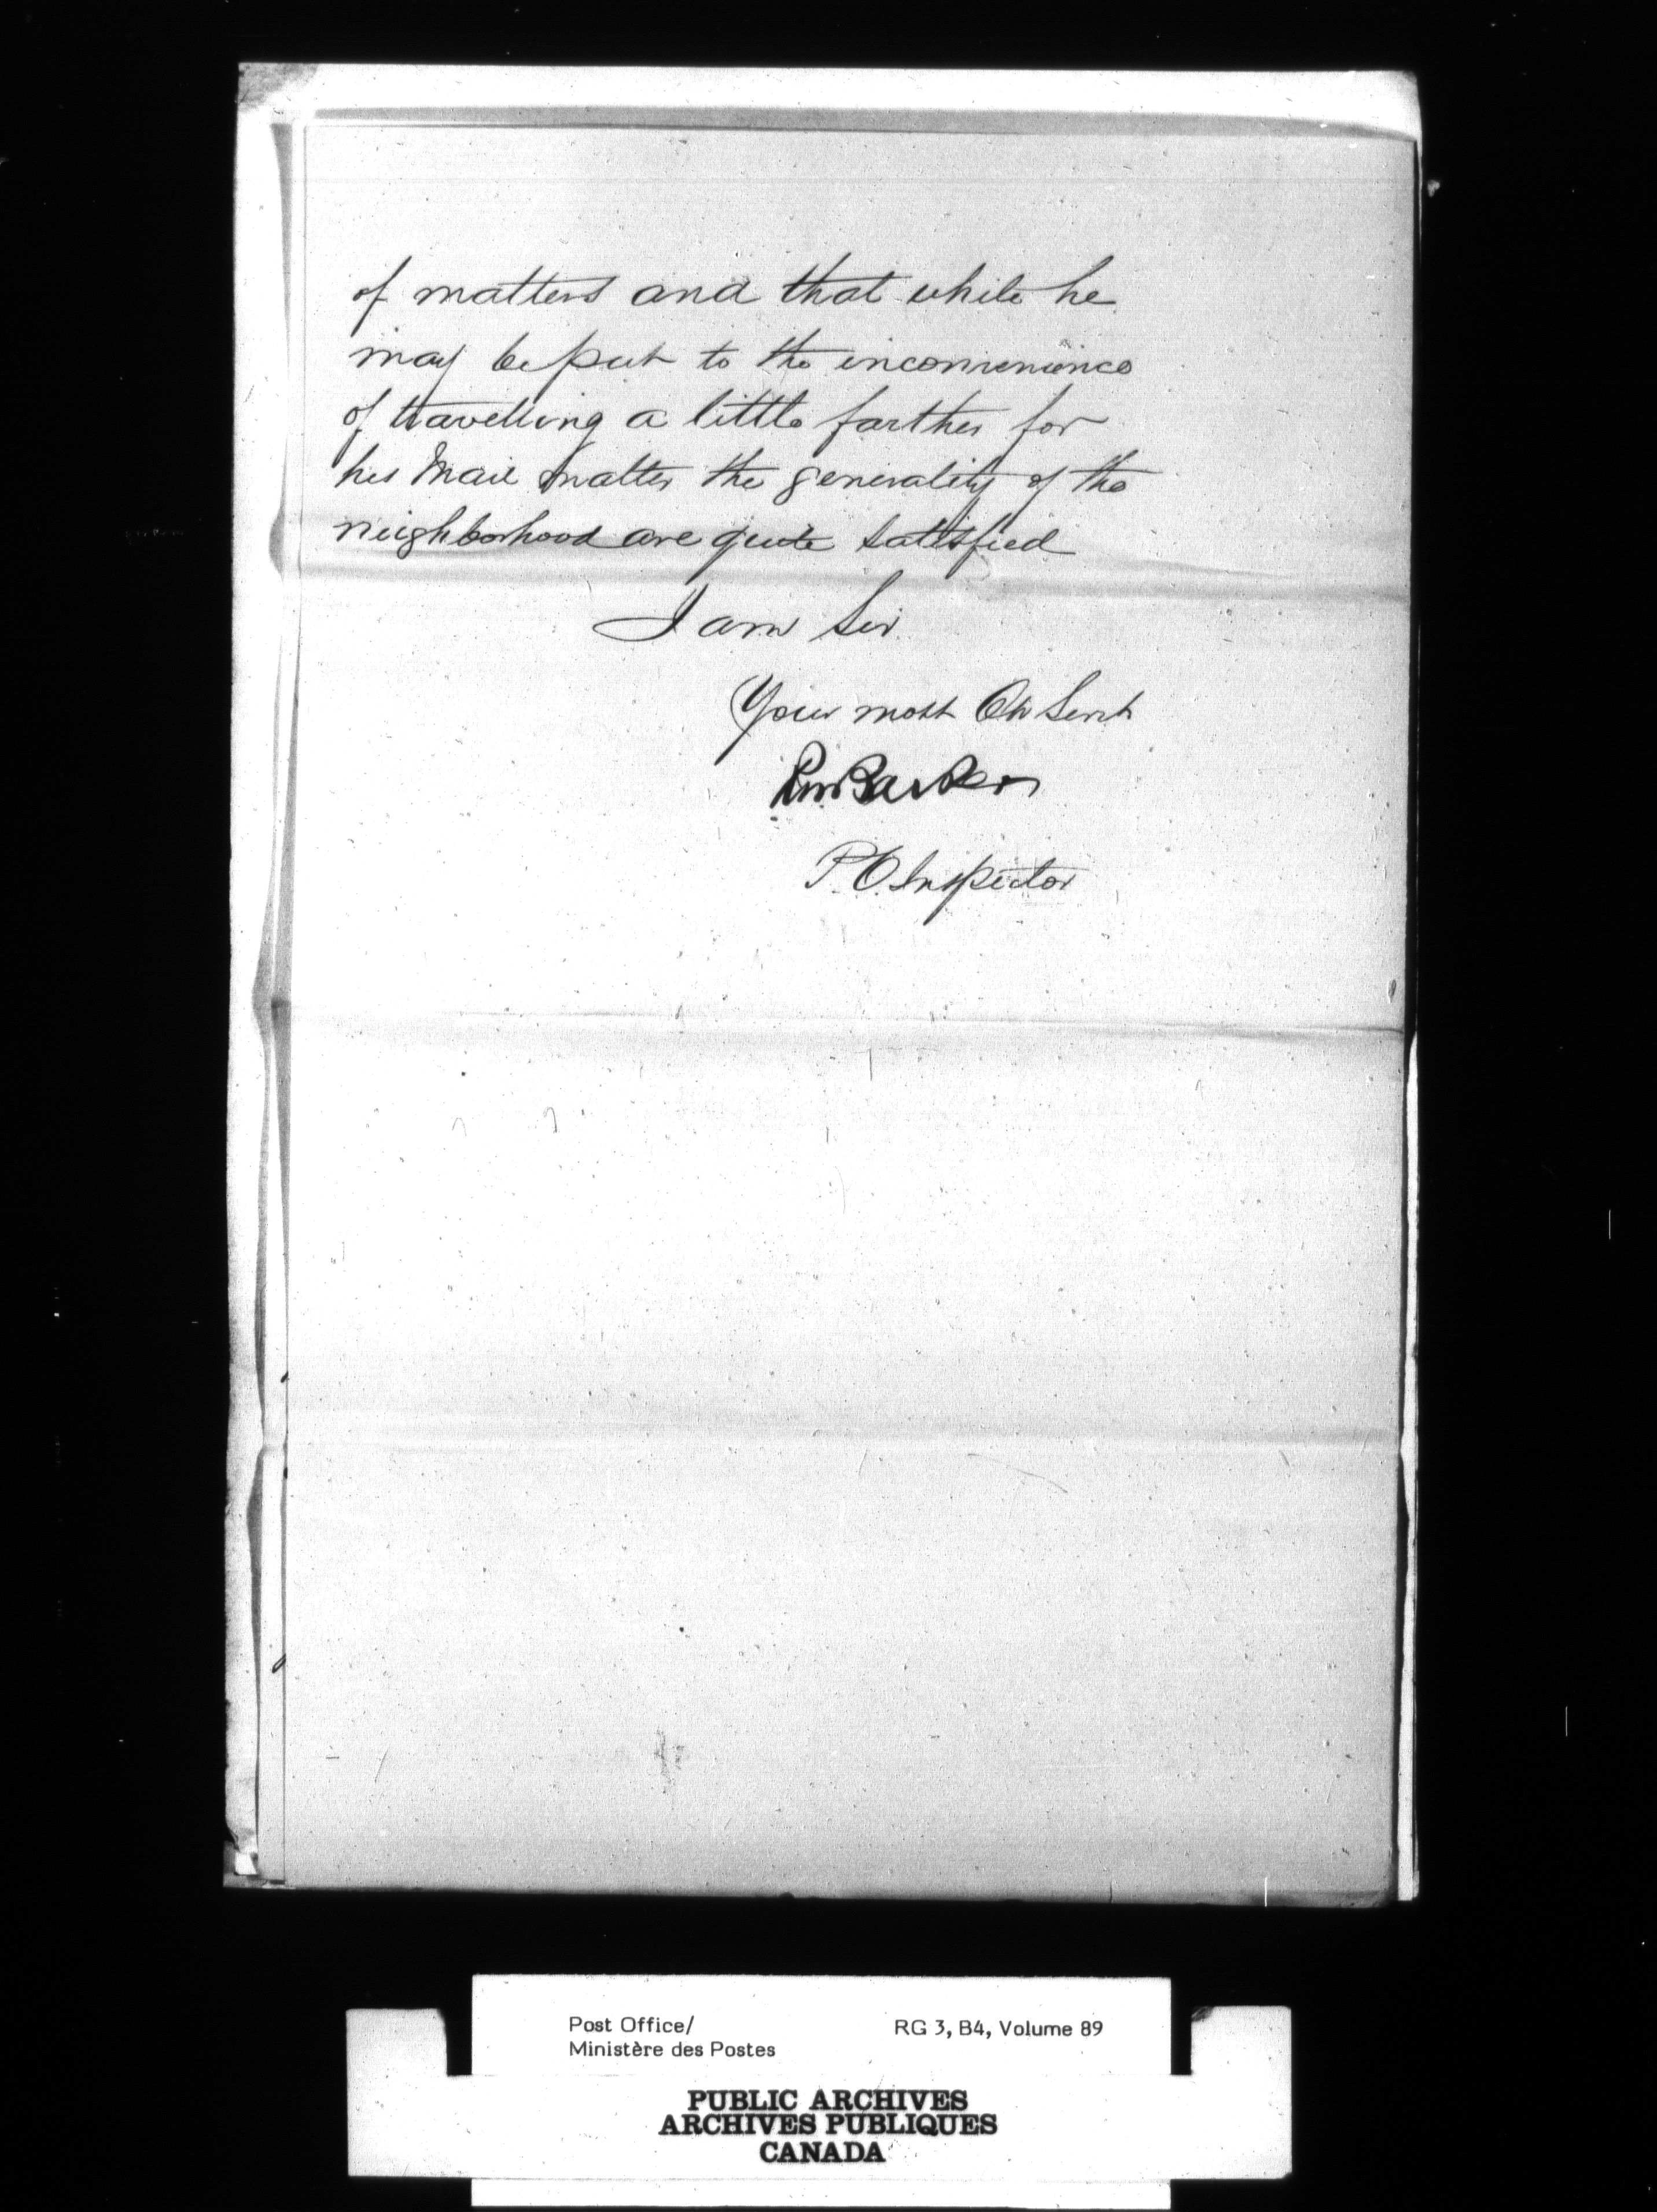 of matters and that while he
may be put to the inconvenience
of travelling a little farther for
his Mail matter the generality of the
neighborhood are quite satisfied
I am Sir
Your most Ob Servt
RW Barker
P.O. Inspector
Post Office/
Ministère des Postes
RG 3, B4, Volume 89
PUBLIC ARCHIVES
ARCHIVES PUBLIQUES
CANADA